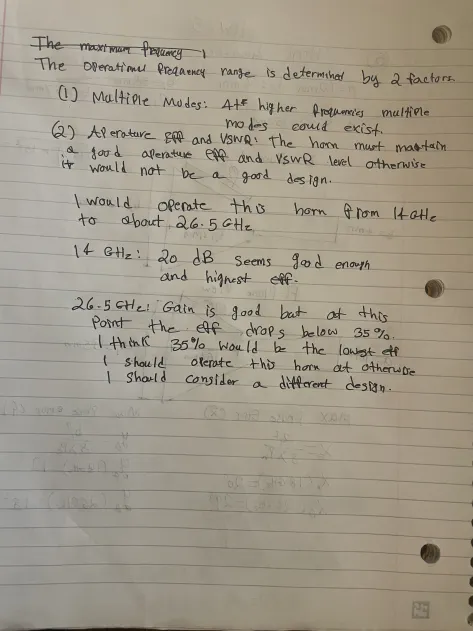 The maximum frequency
The Operational frequency range is determined by 2 factors.
(1) Multiple Modes: At higher frequencies multiple
modes could exist.
(2) Aperature Eff and VSWR: The horn must maintain
a good aperature eff and VSWR level otherwise
it would not be a good design.
I would operate this horn from 14 GHz
to about 26.5 GHz
14 GHz: 20 dB seems good enough
and highest eff.
26.5 GHz: Gain is good but at this
Point the eff drops below 35%.
I think 35% would be the lowest eff
I should operate this horn at otherwise
I should consider a different design.